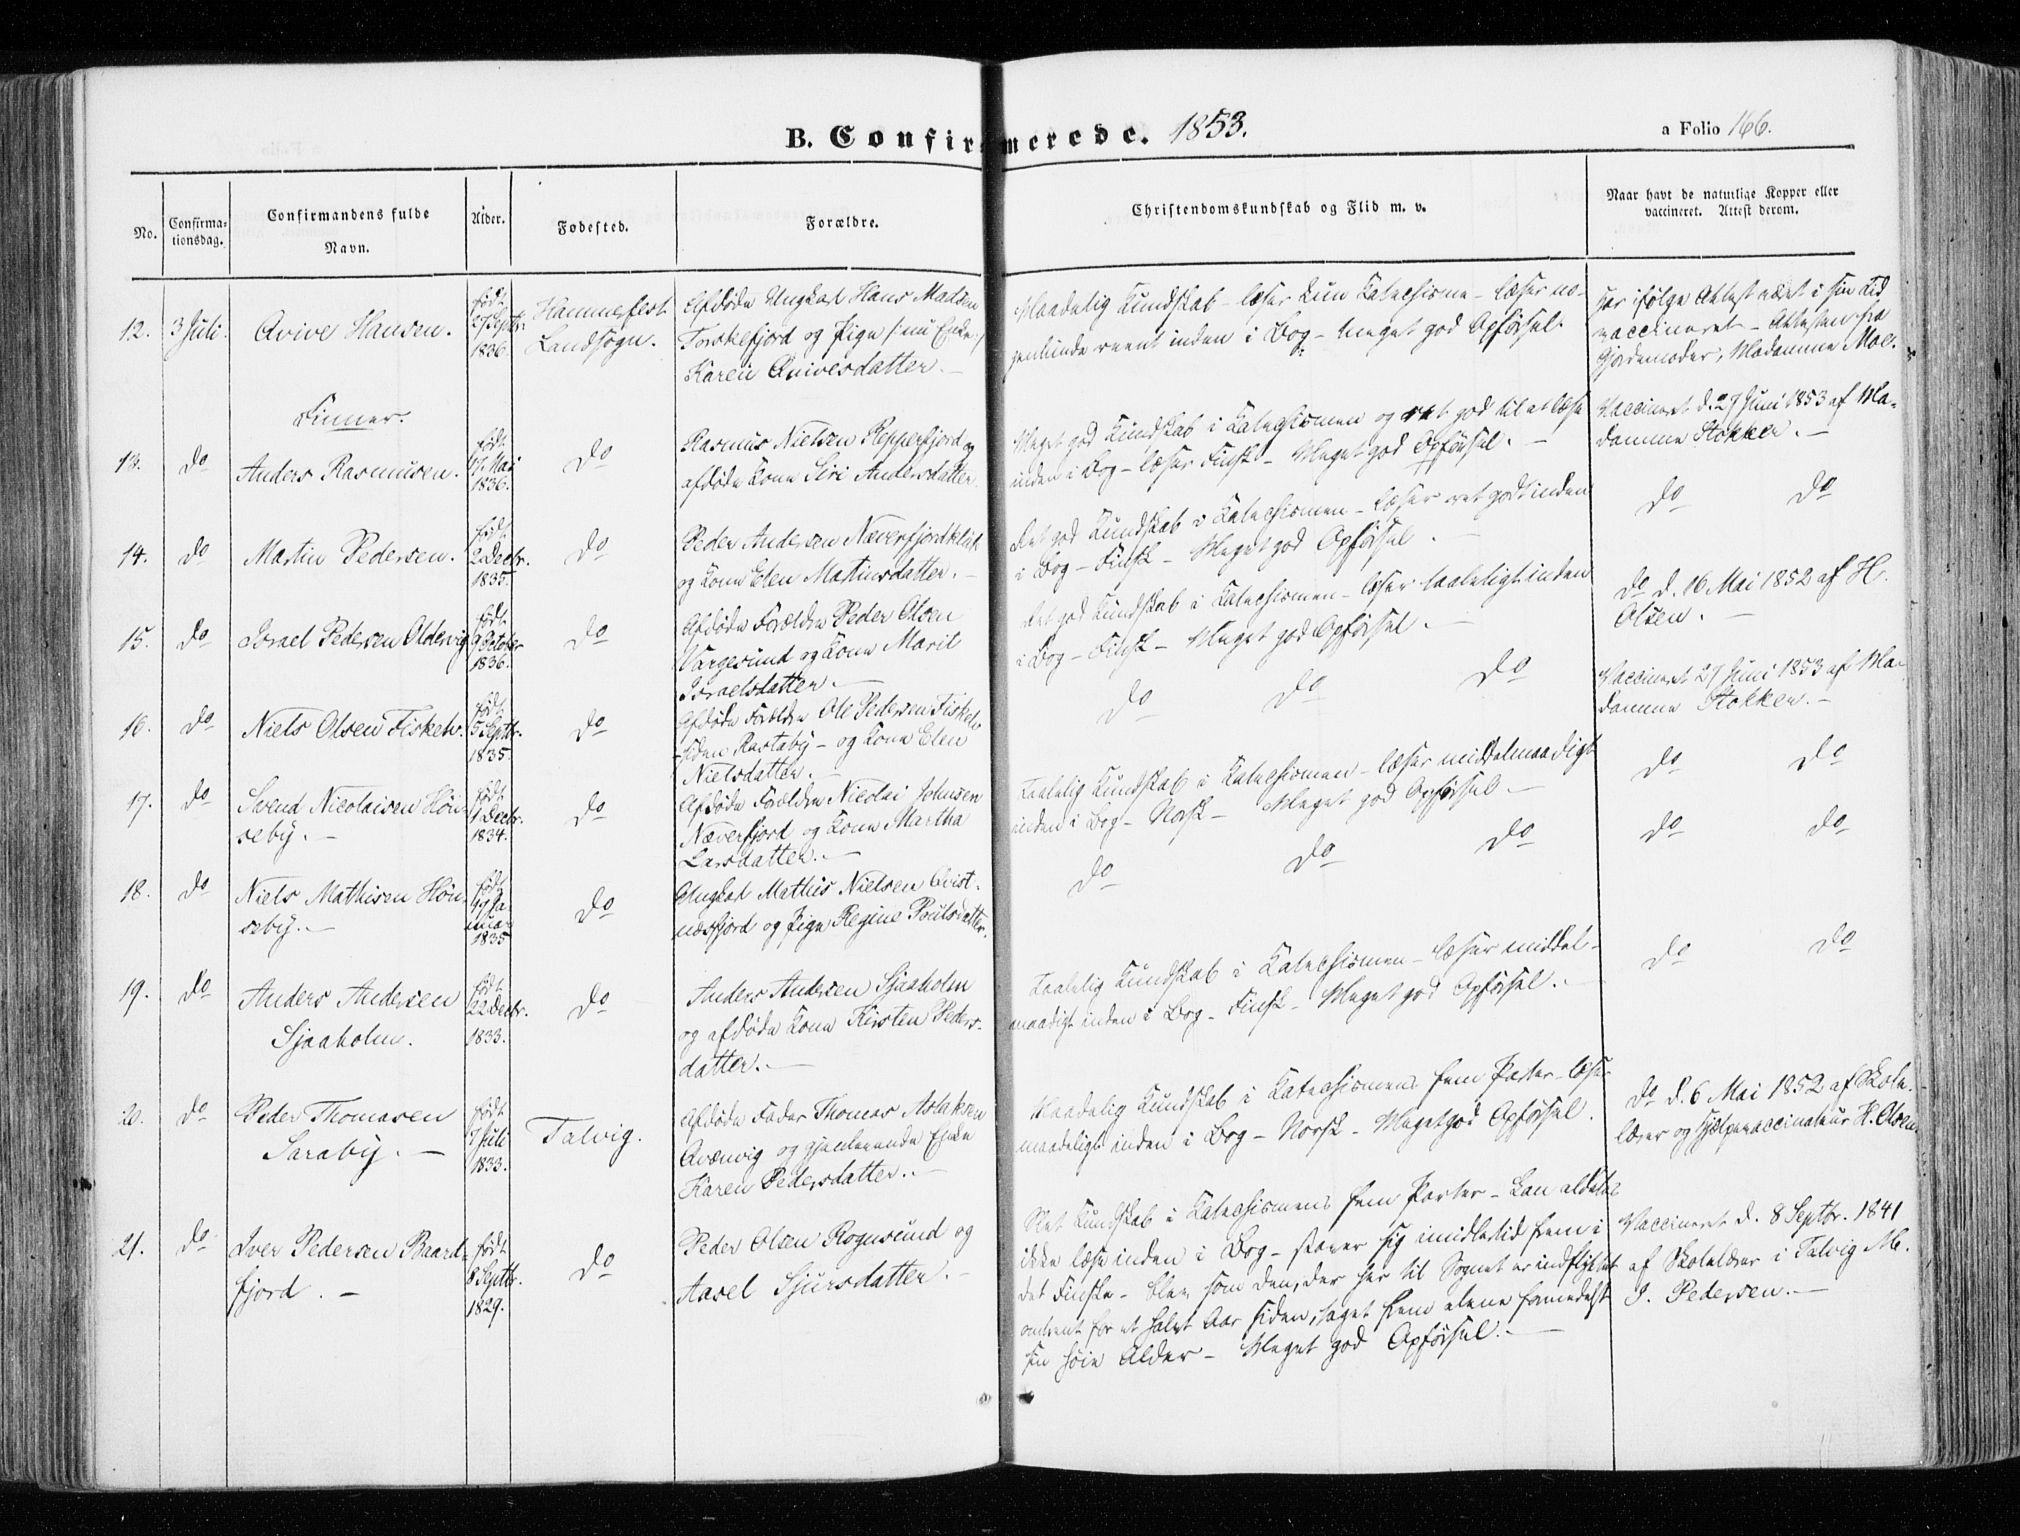 B. Confirmerede. 1853.
a Folio 166.
No.
Confirma-
tionsdag.
Confirmandens fulde
Navn.
Alder.
Fødested.
Forældre.
Christendomskundskab og Flid m. v.
Naar havt de naturlige Kopper eller
vaccineret. Attest derom.
12. 3 Juli. Avive Hansen.
født
27 Septbr.
1836.
Hammerfest
Landsogn.
Afdøde Ungkarl Hans Madsen
Torskefjord og Pige (nu Enke)
Karen Avivesdatter. -
Maadelig Kundskab - læser kun Katechisme - læser no-
genlunde reent inden i Bog - meget god Opførsel.
har ifølge Attest været i sin tid
vaccineret - Attesten fra
Gjordemoder, Madamme Moe.
Finner.
13. Do Anders Rasmusen.
født
17 Mai
1836.
Do
Rasmus Nielsen Repperfjord og
afdøde Kone Siri Andersdatter.
Meget god Kundskab i Katechismen og ret god til at læse
inden i Bog - læser Finsk - Meget god Opførsel. -
Vaccineret d. 27 Juni 1853 af Ma-
damme Stokken. -
14. Do Martin Pedersen.
født
2 Decbr.
1835.
Do
Peder Andersen Næverfjordklub
og Kone Elen Martinsdatter. -
Ret god Kundskab i Katechismen - læser ret godt inden
i Bog - Finsk - Meget god Opførsel. -
Do Do
15. Do Israel Pedersen Oldervig
født
9 October
1836.
Do
Afdøde Forældre Peder Olsen
Vargesund og Kone Marit
Israelsdatter. -
Ret god Kundskab i Katechismen - læser taaleligt inden
i Bog - Finsk - Meget god Opførsel. -
Do d. 16 Mai 1852 af H.
Olsen. -
16. Do Niels Olsen Fiskeb.
født
5 Septbr.
1835.
Do
Afdøde Forældre Ole Pedersen
siden Rastaby - og Kone Elen
Nielsdatter. -
Do Do Do
Vaccineret 27 Juni 1853 af Ma-
damme Stokken. -
17. Do Svend Nicolaisen Høn-
seby. -
født
1 Decbr.
1834.
Do
Afdøde Forældre Nicolai Johnsen
Næverfjord og Kone Martha
Larsdatter. -
Taalelig Kundskab i Katechismen - læser middelmaadigt
inden i Bog - Norsk - Meget god Opførsel. -
Do Do
18. Do Niels Mathisen Høn-
seby. -
født
19 Ja-
nuar
1835
Do
Ungkarl Mathis Nielsen Qvist-
næsfjord og Pige Regine Poulsdatter.
Do Do Do
Do Do
19. Do Anders Andersen
Sjaaholm.
født
22 Decbr.
1833.
Do
Anders Andersen Sjaaholm
og afdøde Kone Kirsten Peders-
datter. -
Taalelig Kundskab i Katechismen - læser middel-
maadigt inden i Bog - Finsk - Meget god Opførsel. -
Do Do
20. Do Peder Thomasen
Saraby. -
født
7 Juli
1833.
Talvig.
Afdøde Fader Thomas Aslaksen
Qvænvig og gjenlevende Enke
Karen Pedersdatter. -
Maadelig Kundskab i Katechismens fem Parter - læser
maadeligt inden i Bog - Norsk - Meget god Opførsel.
Do d. 6 Mai 1852 af Skole-
lærer og Hjælpevaccinateur H. Olsen.
21. Do Iver Pedersen Baard-
fjord. -
født
8 Septbr.
1829.
Do
Peder Olsen Rognsund og
Aasel Sjursdatter. -
Slet Kundskab i Katechismens fem Parter - kan aldeles
ikke læse inden i Bog - staver sig imidlertid frem i
det Finske - blev som den, der her til Sognet er indflyttet
omtrent for et halvt Aar siden, taget frem alene formedelst
sin høie Alder - Meget god Opførsel. -
Vaccineret d. 8 Septbr. 1841
af Skolelærer i Talvig M.
I. Pedersen. -